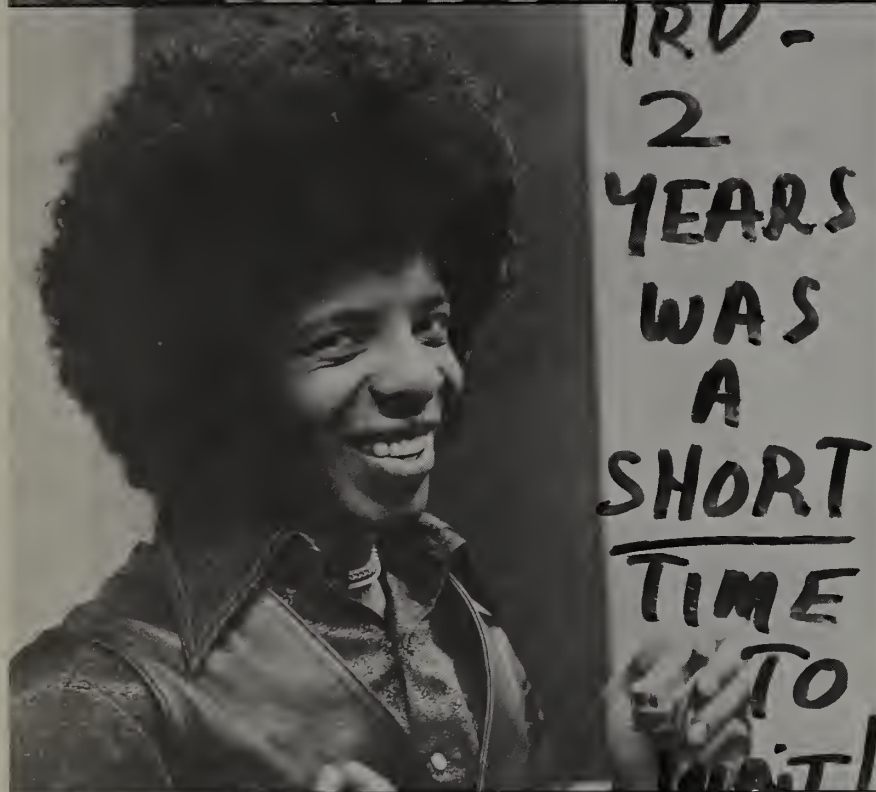 IRV -
2
YEARS
WAS
A
SHORT
TIME
TO
WAIT!